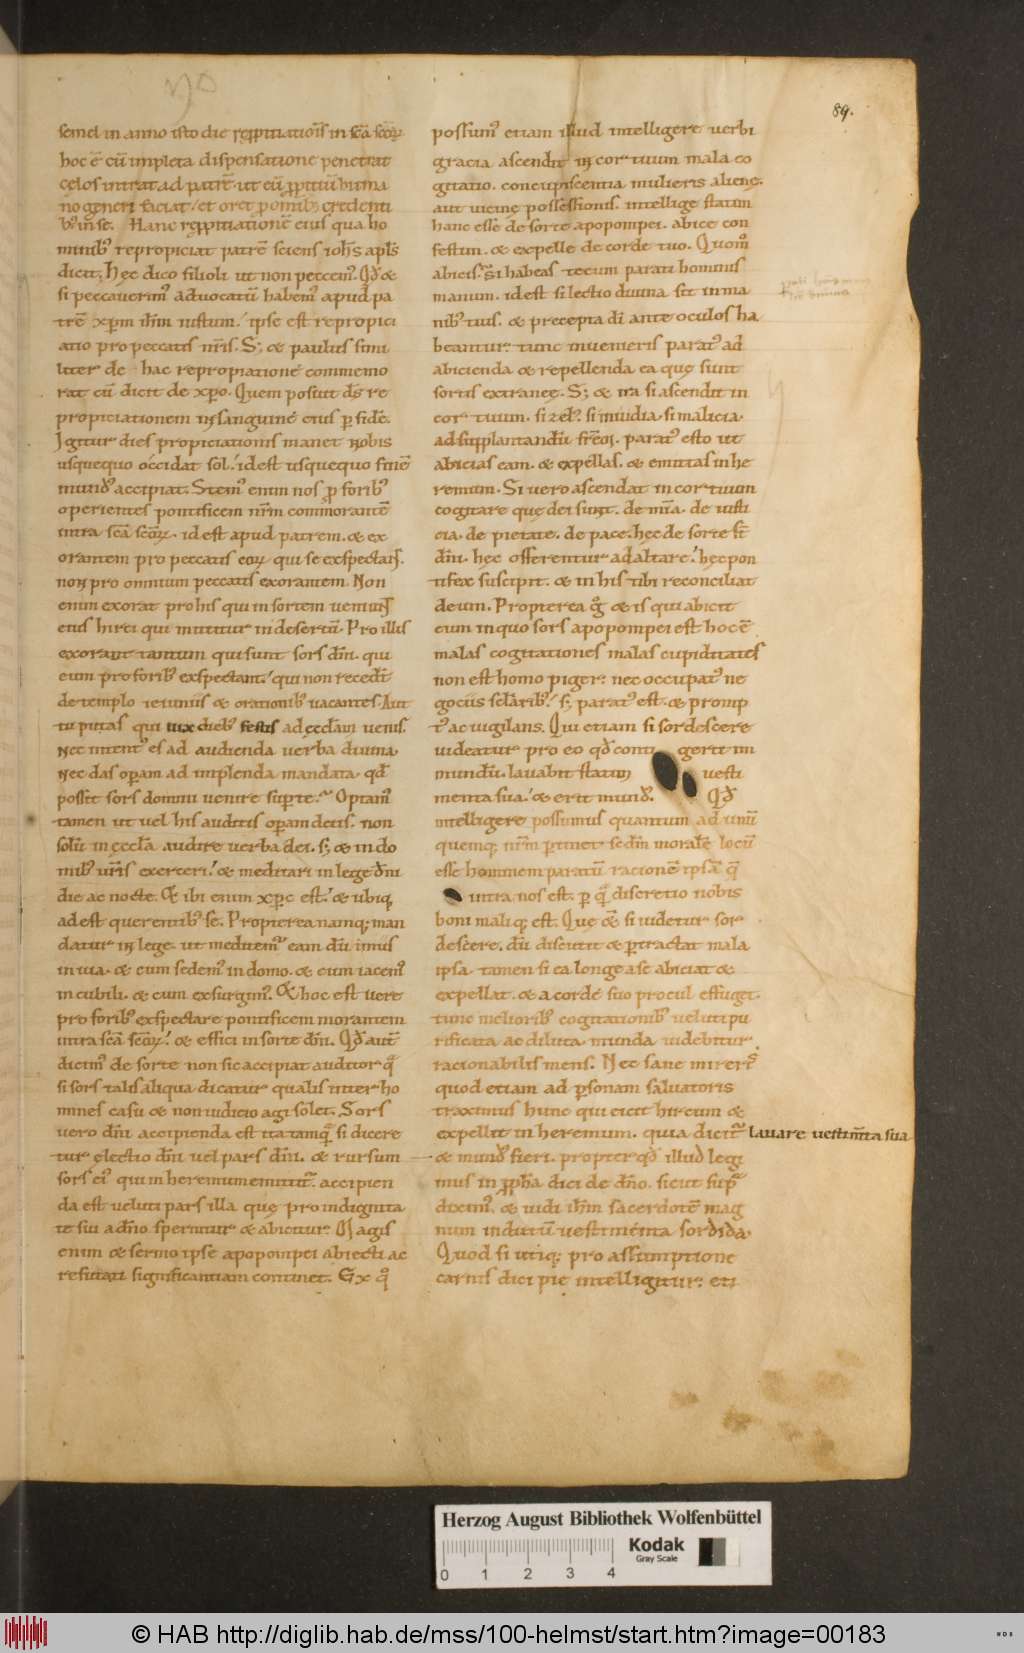 89.
semel in anno isto die rep̱ptiationis in scā scōꝝ
hoc ē cū impleta dispensatione penetrat
cęlos intrat ad patrē. ut eū p̱pitiū huma
no generi faciat / et oret pro omnib; credenti
b; in se. Hanc rep̱pitiationē eius qua ho
minib; repropiciat patrē sciens ioh̄s apl̄s
dicit; Hęc dico filioli ut non peccem᷒. Qđ &
si peccauerim᷒ aduocatū habem᷒ apud pa
trē xp̄m ih̄m iustum! ipse est repropici
atio pro peccatis nr̄is. S; & paulus simi
liter de hac repropiatione commemo
rat cū dicit de xp̄o. Quem posuit d̄s re
propiciationem in sanguine eius ꝑ fidē.
Igitur dies propiciationis manet nobis
usquequo occidat sol! id est usquequo finē
mund᷒ accipiat. Stem᷒ enim nos ꝑ forib᷒
operientes pontificem nr̄m commorantē
intra scā scōꝝ. id est apud patrem. & ex
orantem pro peccatis eoꝝ qui se exspectant.
non pro omnium peccatis exorantem. Non
enim exorat pro his qui in sortem ueniunt
eius hirci qui mittitur in desertū. Pro illis
exorant tantum qui sunt sors dn̄i. qui
eum pro forib᷒ exspectant! qui non recedūt
de templo ieiuniis & orationib᷒ uacantes. Aut
tu putas qui uix dieb᷒ festis ad ęcclam uenis.
nec intent᷒ es ad audienda uerba diuina.
nec das oꝑam ad implenda mandata. qđ
possit sors domini uenire sup te? Optam᷒
tamen ut uel his auditis oꝑam detis. non
solū in ęccl̄a audire uerba dei. s; & in do
mib᷒ ur̄is exerceri! & meditari in lege dn̄i
die ac nocte. & ibi enim xp̄c est! & ubiq;
adest querentib᷒ se. Propterea namq; man
datur in lege. ut meditem᷒ eam dū imus
in uia. & cum sedem᷒ in domo. & cum iacem᷒
in cubili. & cum exsurgim᷒. & hoc est uere
pro forib᷒ exspectare pontificem morantem
intra scā scōꝝ! & effici in sorte dn̄i. Qđ aut̄
dicim᷒ de sorte non sic accipiat auditor q̄
si sors talis aliqua dicatur qualis inter ho
mines casu & non iudicio agi solet. Sors
uero dn̄i accipienda est ita tamq̄ si dicere
tur ęlectio dn̄i uel pars dn̄i. & rursum
sors ei᷒ qui in heremum emittit᷒. accipien
da est ueluti pars illa quę pro indignita
te sui a dn̄o spernitur & abicitur. Magis
enim & sermo ipse apopompei abiecti ac
refutati significantiam continet. Ex q°
possum᷒ etiam illud intelligere uerbi
gracia ascendit in cor tuum mala co
gitatio. concupiscentia mulieris alienę.
aut uicine possessionis. intellige statim
hanc esse de sorte apopompei. abice con
festim. & expelle de corde tuo. Quom°
abicis. Si habeas tecum parati hominis
manum. id est si lectio diuina sit in ma
nib᷒ tuis. & precepta dī ante oculos ha
beantur. tunc inuenieris parat᷒ ad
abicienda & repellenda ea quę sunt
sortis extranee. S; & ira si ascendit in
cor tuum. si zel᷒. si inuidia. si malicia.
ad supplantandū frēm. parat᷒ esto ut
abicias eam. & expellas. & emittas in he
remum. Si uero ascendat in cor tuum
cogitare quę dei sunt. de mīa. de iusti
cia. de pietate. de pace. hęc de sorte st̄
dn̄i. hęc offerentur ad altare! hęc pon
tifex suscipit. & in his tibi reconciliat
deum. Propterea g° & is qui abicit
eum in quo sors apopompei est hoc ē
malas cogitationes malas cupiditates
non est homo piger. nec occupat᷒ ne
gociis sclarib᷒! s; parat᷒ est. & promp
t᷒ ac uigilans. Qui etiam si sordescere
uideatur pro eo qđ conti gerit im
mundū. lauabit statim uesti
menta sua! & erit mund᷒. Qđ
intelligere possumus quantum ad unū
quemq; nr̄m ꝑtinet sedm moralē locū
esse hominem paratū racionē ipsā q̄
intra nos est. ꝑ q̄ discretio nobis
boni maliq; est. Quę & si uidetur sor
descere. dū discutit & ꝑtractat mala
ipsa. tamen si ea longe a se abiciat &
expellat. & a corde suo procul effuget.
tunc meliorib᷒ cogitationib᷒ ueluti pu
rificata ac diluta. munda uidebitur
racionabilis mens. Nec sane mireris
quod etiam ad ꝑsonam saluatoris
traximus hunc qui eicit hircum &
expellit in heremum. quia dicit᷒ lauare uestim̄ta sua
& mund᷒ fieri. propter qđ illud legi
mus in ꝓph̄a dici de dn̄o. sicut sup̄
dixim᷒. & uidi ih̄m sacerdotē mag
num indutū uestimenta sordida.
Quod si utiq; pro assumptione
carnis dici pie intelligitur. eti
Herzog August Bibliothek Wolfenbüttel
0 1 2 3 4
Kodak
Gray Scale
© HAB http://diglib.hab.de/mss/100-helmst/start.htm?image=00183